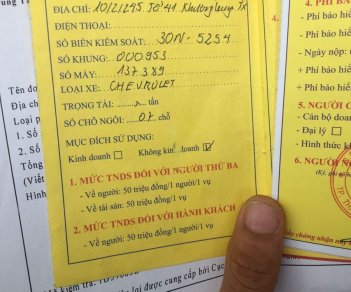 ĐỊA CHỈ: 10/21245 Tổ 41 Khương Trung. TX
ĐIỆN THOẠI:
SỐ BIỂN KIỂM SOÁT: 30N - 5254
SỐ KHUNG: 000953
SỐ MÁY: 137389
LOẠI XE: CHEVROLET
TRỌNG TẢI: tấn
SỐ CHỖ NGỒI: 07 chỗ
MỤC ĐÍCH SỬ DỤNG:
Kinh doanh Không kinh doanh
1. MỨC TNDS ĐỐI VỚI NGƯỜI THỨ BA
- Về người: 50 triệu đồng/1 người/1 vụ
- Về tài sản: 50 triệu đồng/1 vụ
2. MỨC TNDS ĐỐI VỚI HÀNH KHÁCH
- Về người: 50 triệu đồng/1 người/1 vụ
4. PHÍ
- Phí bảo hiể
+ Phí bảo hiể
- Ngày nộp:
+ Phí bảo hiể
+ Phí bảo hiể
5. NGƯỜI C
- Cán bộ doa
- Đại lý
- Hình thức k
6. NGƯỜI
chứng nhận này
Tên do
Địa ch
Loại p
1. Số
2. Số
Tổng
(Viết
Hình
kiểm tra:
được cung cấp bởi Cục